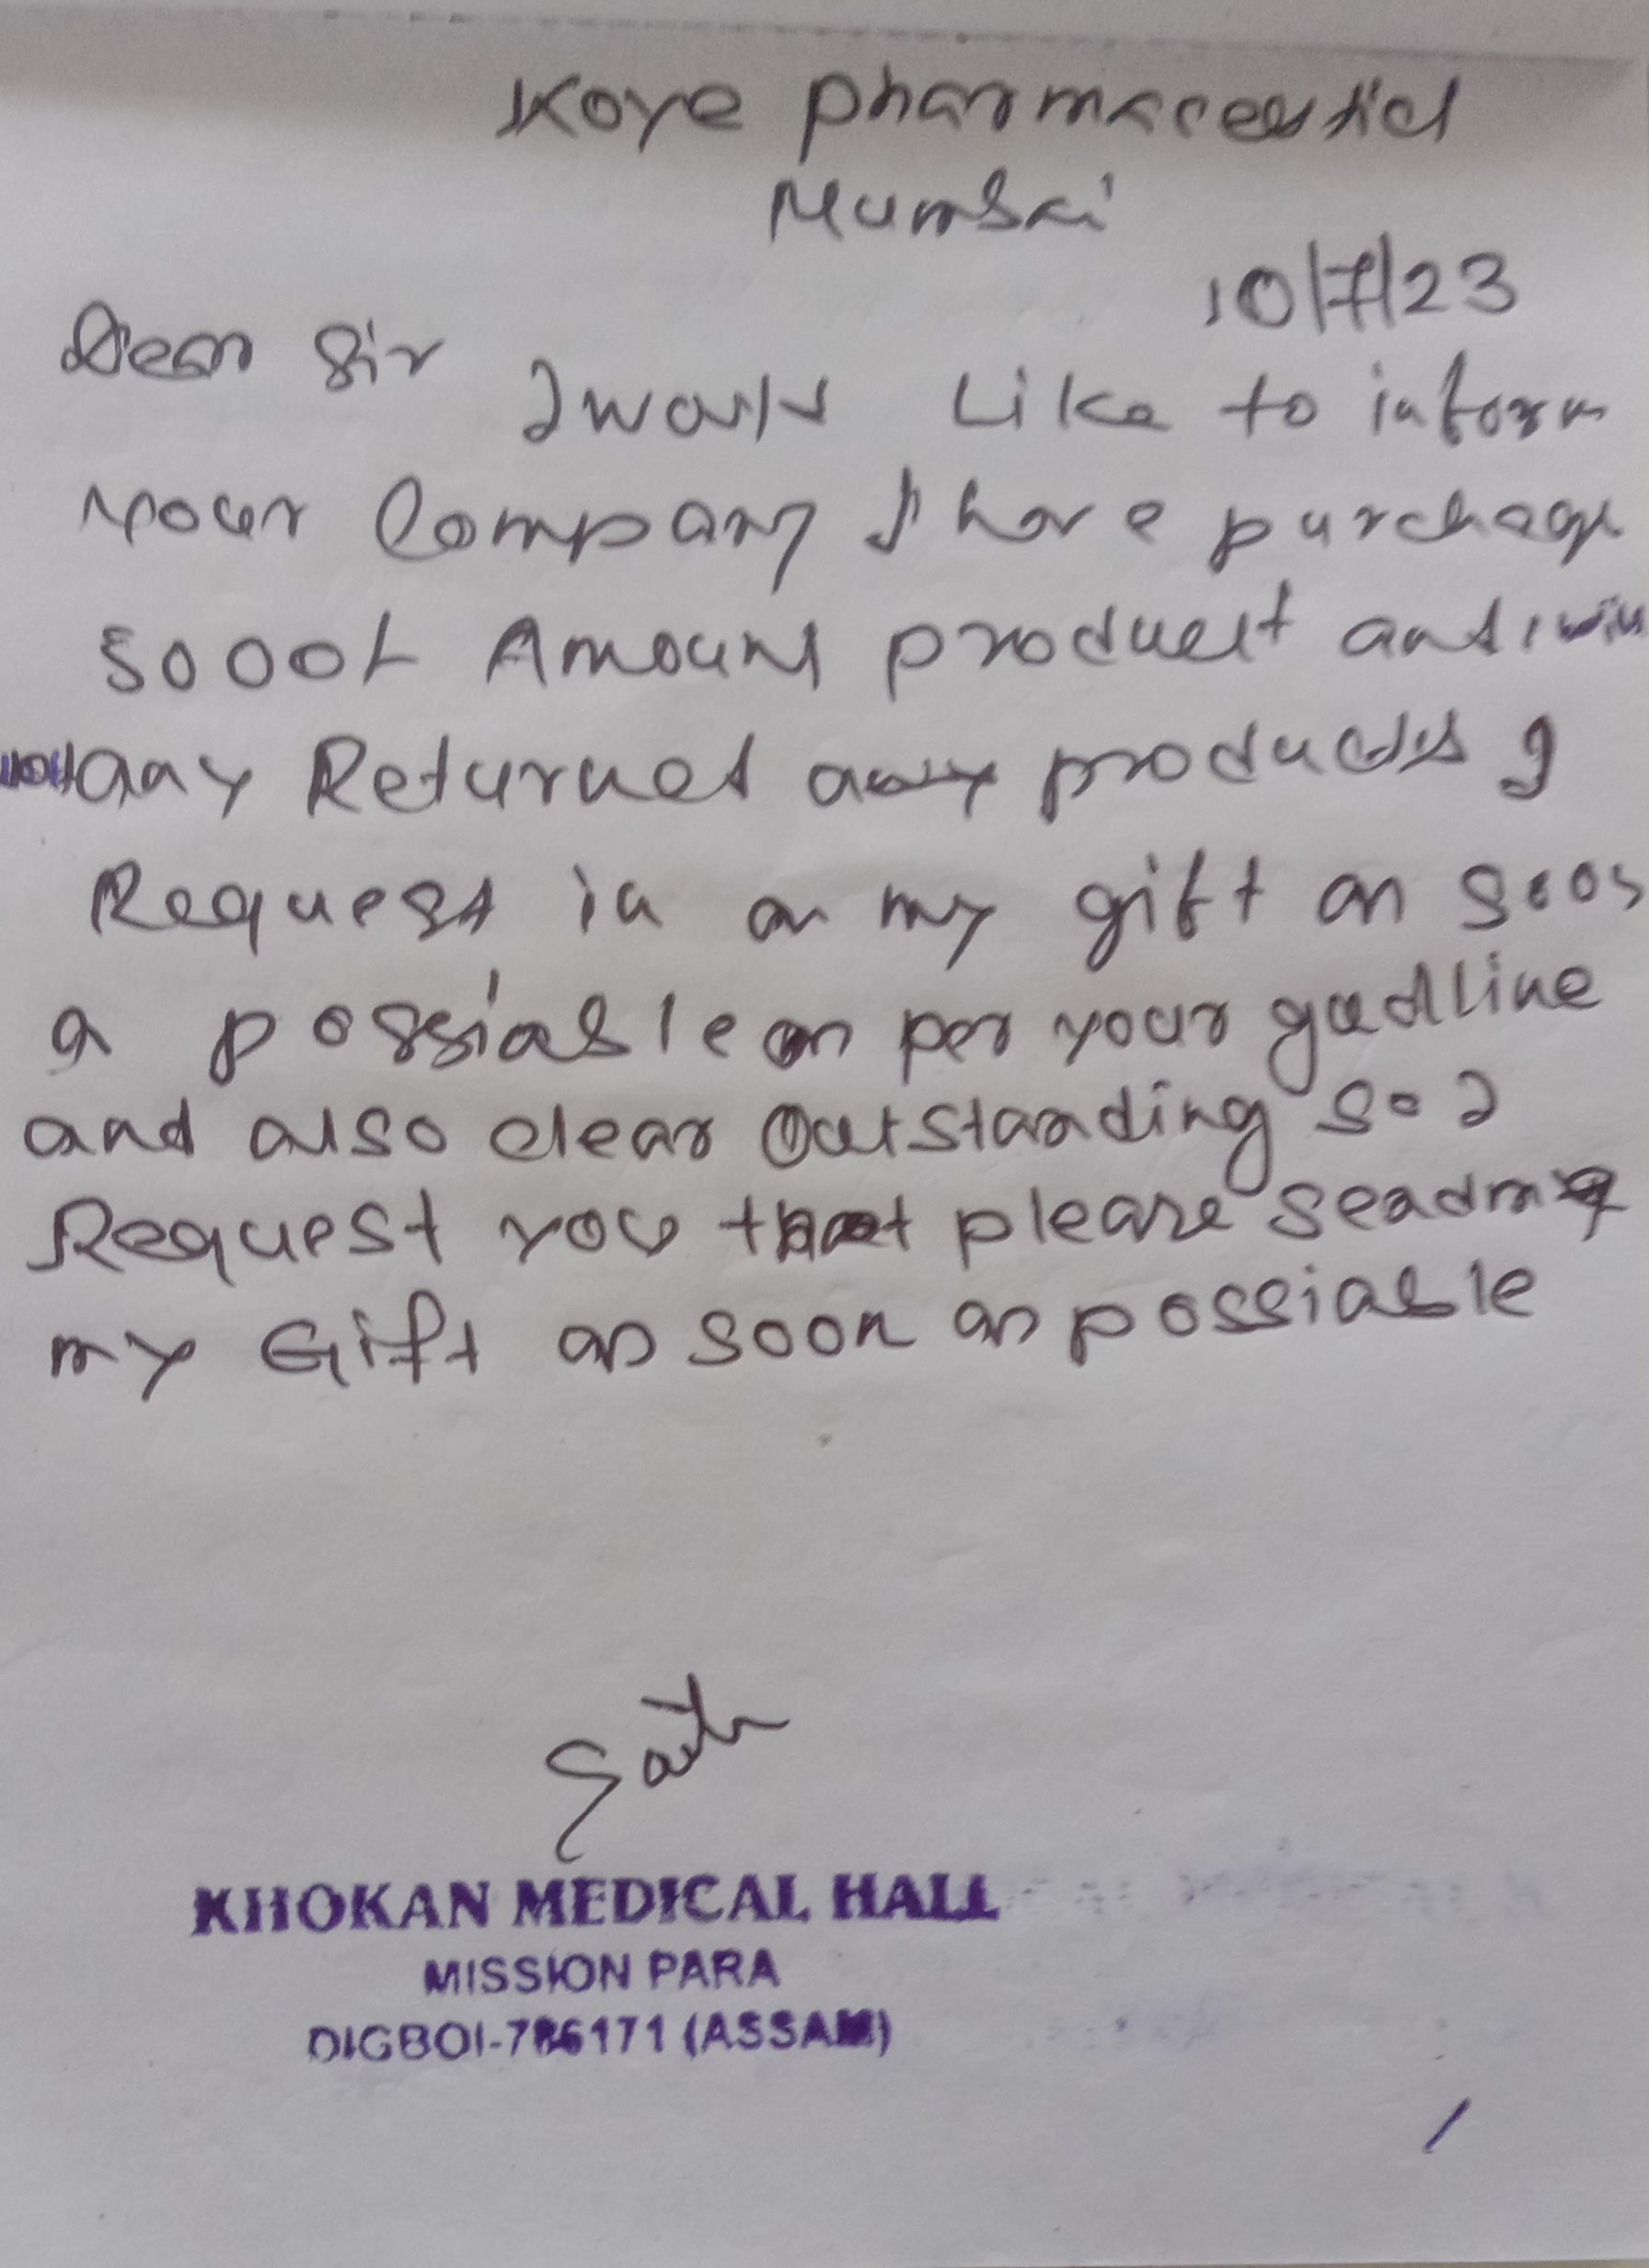 Koye pharmaceutical
Mumbai
10/7/23
Dear Sir
I would Like to inform
your Company I have purchage
5000/- Amount product and i will
not any Returned any products I
Request in on my gift as soon
a possiable as per your guidline
and also clear Outstanding so I
Request you that please send
my Gift as soon as possiable
KHOKAN MEDICAL HALL
MISSION PARA
DIGBOI-786171 (ASSAM)